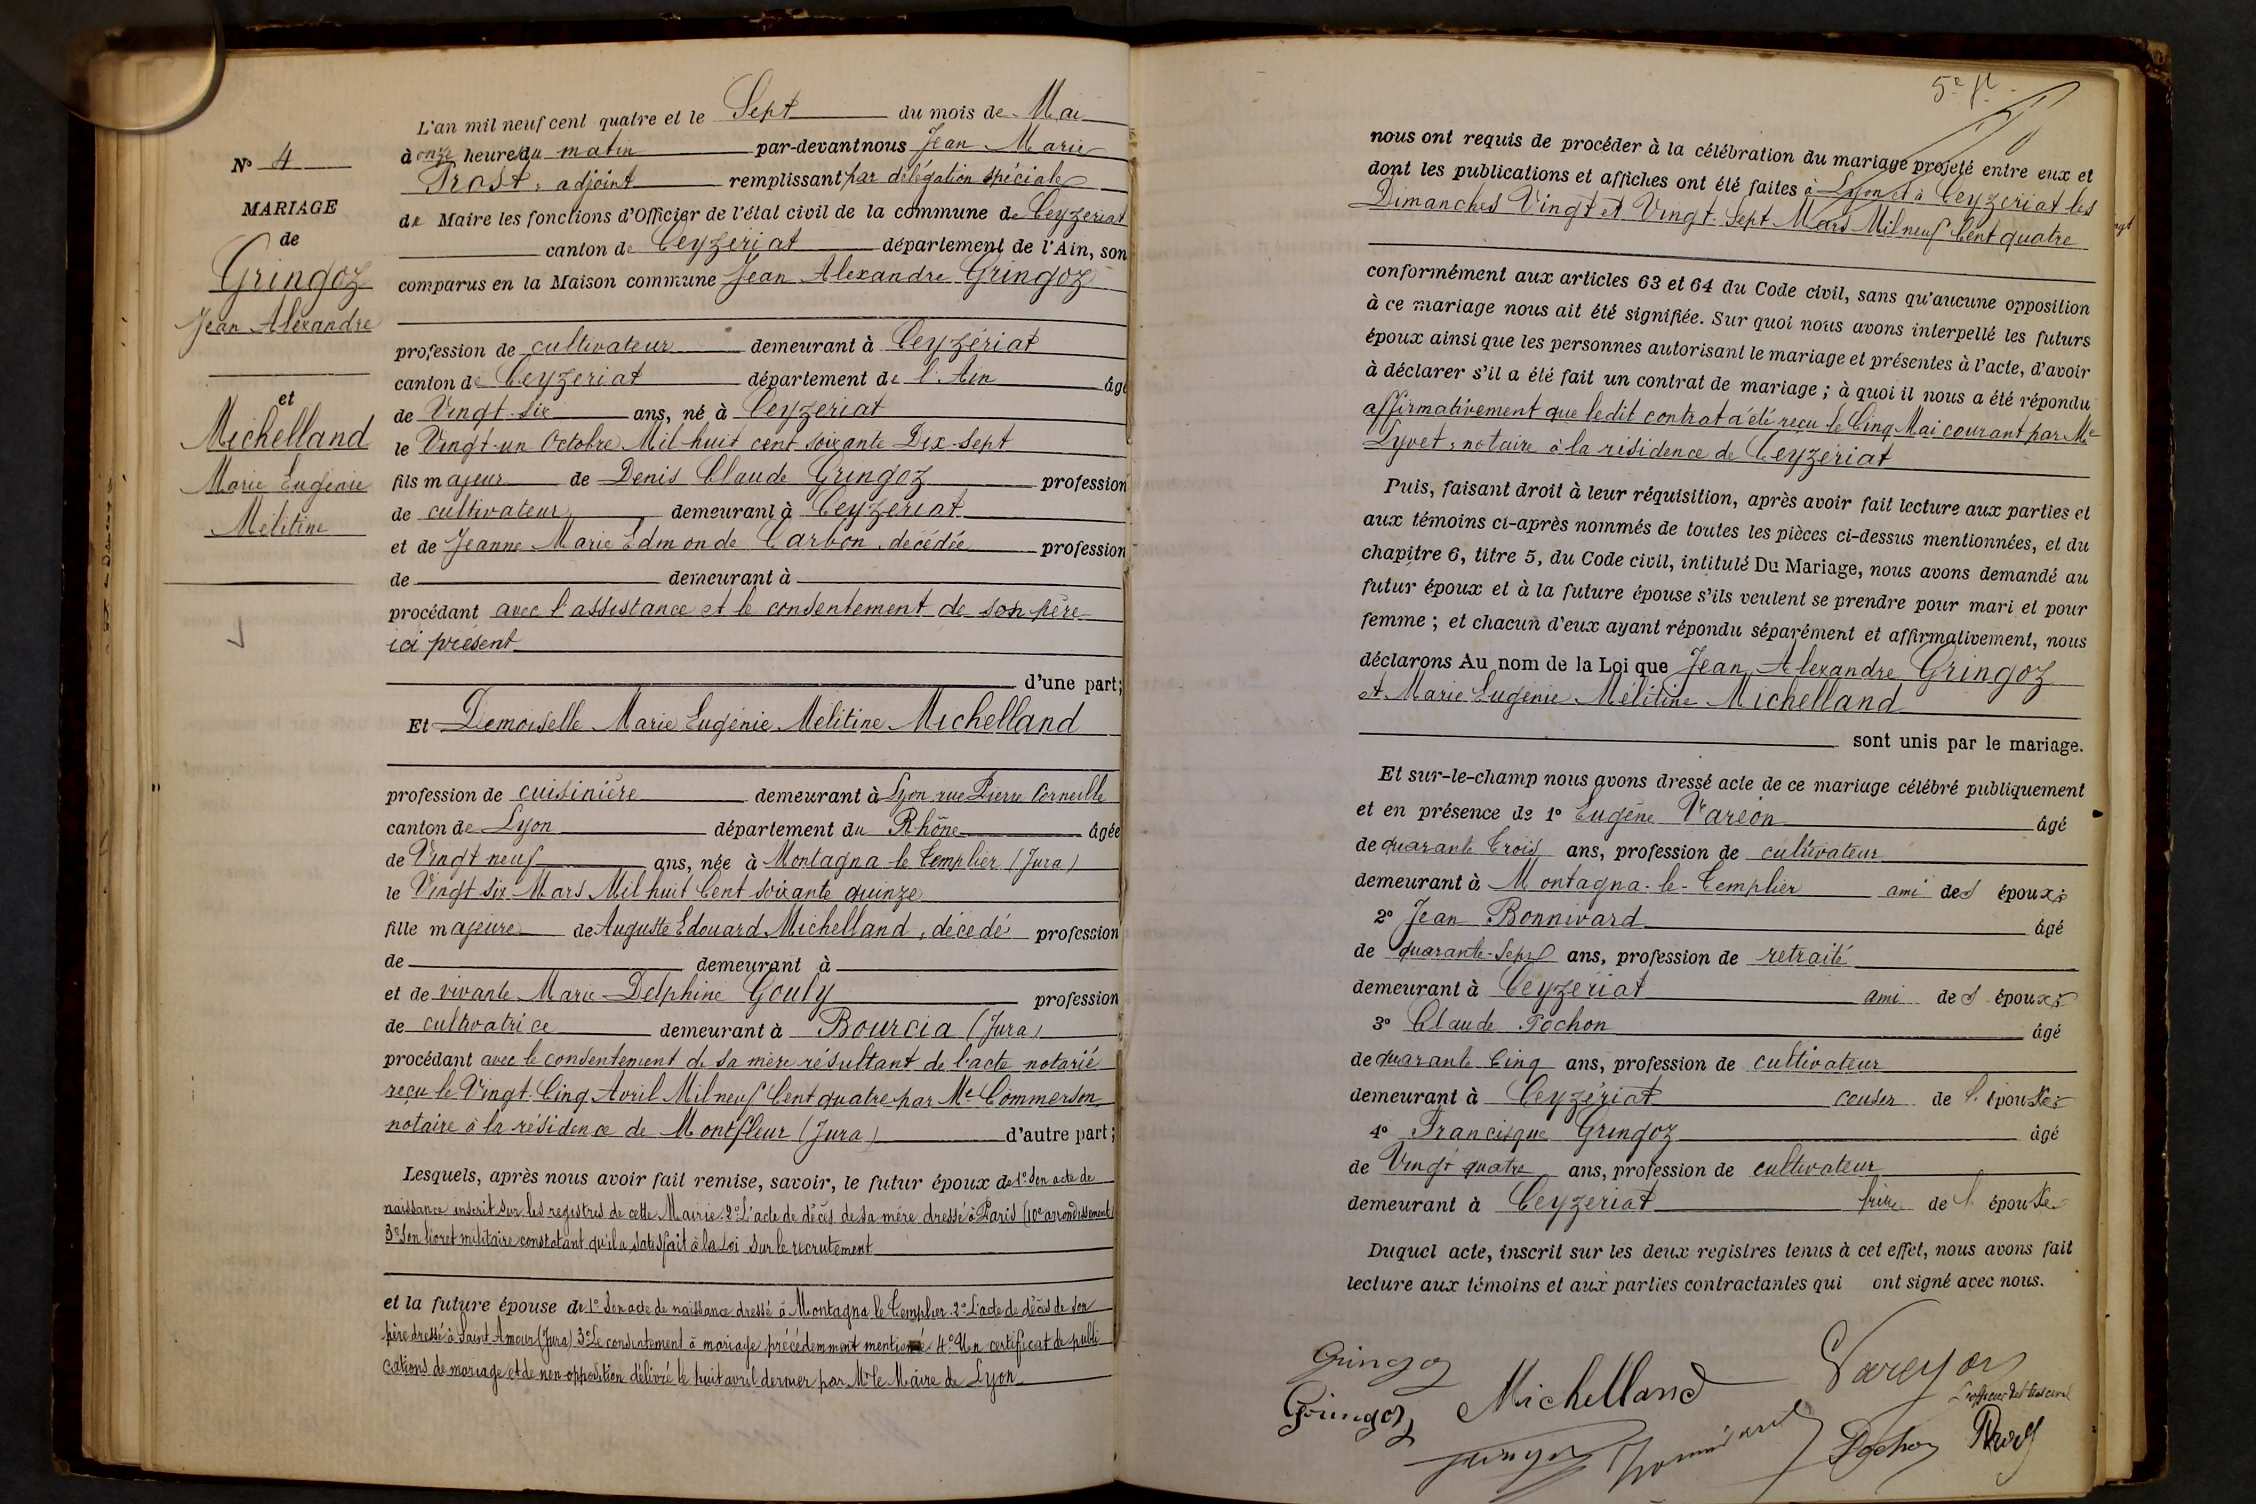 N° 4
MARIAGE
de
Gringoz
Jean Alexandre
et
Michelland
Marie Eugénie
Mélitine
L'an mil neuf cent quatre et le Sept du mois de Mai
à onze heures du matin par-devant nous Jean Marie
Prost, adjoint remplissant par délégation spéciale
de Maire les fonctions d'Officier de l'état civil de la commune de Ceyzeriat
canton de Ceyzériat département de l'Ain, son
comparus en la Maison commune Jean Alexandre Gringoz
profession de cultivateur demeurant à Ceyzériat
canton de Ceyzeriat département de l'Ain âgé
de Vingt-six ans, né à Ceyzeriat
le Vingt-un Octobre Mil huit cent soixante Dix-Sept
fils majeur de Denis Claude Gringoz profession
de cultivateur demeurant à Ceyzeriat
et de Jeanne Marie Edmonde Carbon, décédée profession
de demeurant à
procédant avec l'assistance et le consentement de son père
ici présent
d'une part;
Et Demoiselle Marie Eugénie Mélitine Michelland
profession de cuisinière demeurant à Lyon rue Pierre Corneille
canton de Lyon département du Rhône âgée
de Vingt neuf ans, née à Montagna le Templier (Jura)
le Vingt six Mars Mil huit Cent soixante quinze
fille majeure de Auguste Edouard Michelland, décédé profession
de demeurant à
et de vivante Marie Delphine Gouly profession
de cultivatrice demeurant à Bourcia (Jura)
procédant avec le consentement de sa mère résultant de l'acte notarié
reçu le Vingt Cinq Avril Mil neuf Cent quatre par Me Commerson
notaire à la résidence de Montfleur (Jura) d'autre part;
Lesquels, après nous avoir fait remise, savoir, le futur époux de 1° Son acte de
naissance inscrit sur les registres de cette Mairie 2° L'acte de décès de sa mère dressé à Paris (10e arrondissement)
3° Son livret militaire constatant qu'il a satisfait à la Loi sur le recrutement
et la future épouse de 1° Son acte de naissance dressé à Montagna le Templier 2° L'acte de décès de son
père dressé à Saint Amour (Jura) 3° Le consentement à mariage précédemment mentionné 4° Un certificat de publi
cations de mariage et de non opposition délivré le huit avril dernier par Mr le Maire de Lyon
5e ft
nous ont requis de procéder à la célébration du mariage projeté entre eux et
dont les publications et affiches ont été faites à Lyon et à Ceyzeriat les
Dimanches Vingt et Vingt-Sept Mars Mil neuf Cent quatre
conformément aux articles 63 et 64 du Code civil, sans qu'aucune opposition
à ce mariage nous ait été signifiée. Sur quoi nous avons interpellé les futurs
époux ainsi que les personnes autorisant le mariage et présentes à l'acte, d'avoir
à déclarer s'il a été fait un contrat de mariage; à quoi il nous a été répondu
affirmativement que ledit contrat a été reçu le Cinq Mai courant par Me
Lyvet, notaire à la résidence de Ceyzériat
Puis, faisant droit à leur réquisition, après avoir fait lecture aux parties et
aux témoins ci-après nommés de toutes les pièces ci-dessus mentionnées, et du
chapitre 6, titre 5, du Code civil, intitulé Du Mariage, nous avons demandé au
futur époux et à la future épouse s'ils veulent se prendre pour mari et pour
femme; et chacun d'eux ayant répondu séparément et affirmativement, nous
déclarons Au nom de la Loi que Jean Alexandre Gringoz
et Marie Eugénie Mélitine Michelland
sont unis par le mariage.
Et sur-le-champ nous avons dressé acte de ce mariage célébré publiquement
et en présence de 1° Eugène Vareon âgé
de quarante Trois ans, profession de cultivateur
demeurant à Montagna-le-Templier ami des époux;
2° Jean Bonnivard âgé
de quarante-sept ans, profession de retraité
demeurant à Ceyzériat ami des époux;
3° Claude Pochon âgé
de quarante Cinq ans, profession de cultivateur
demeurant à Ceyzériat cousin de l'époux;
4° Francisque Gringoz âgé
de Vingt quatre ans, profession de cultivateur
demeurant à Ceyzériat frère de l'époux
Duquel acte, inscrit sur les deux registres tenus à cet effet, nous avons fait
lecture aux témoins et aux parties contractantes qui ont signé avec nous.
Gringoz
Vareyon
Gringoz
Michelland
L'officier de l'état civil
Gringoz
Bonnivard
Pochon
Prost